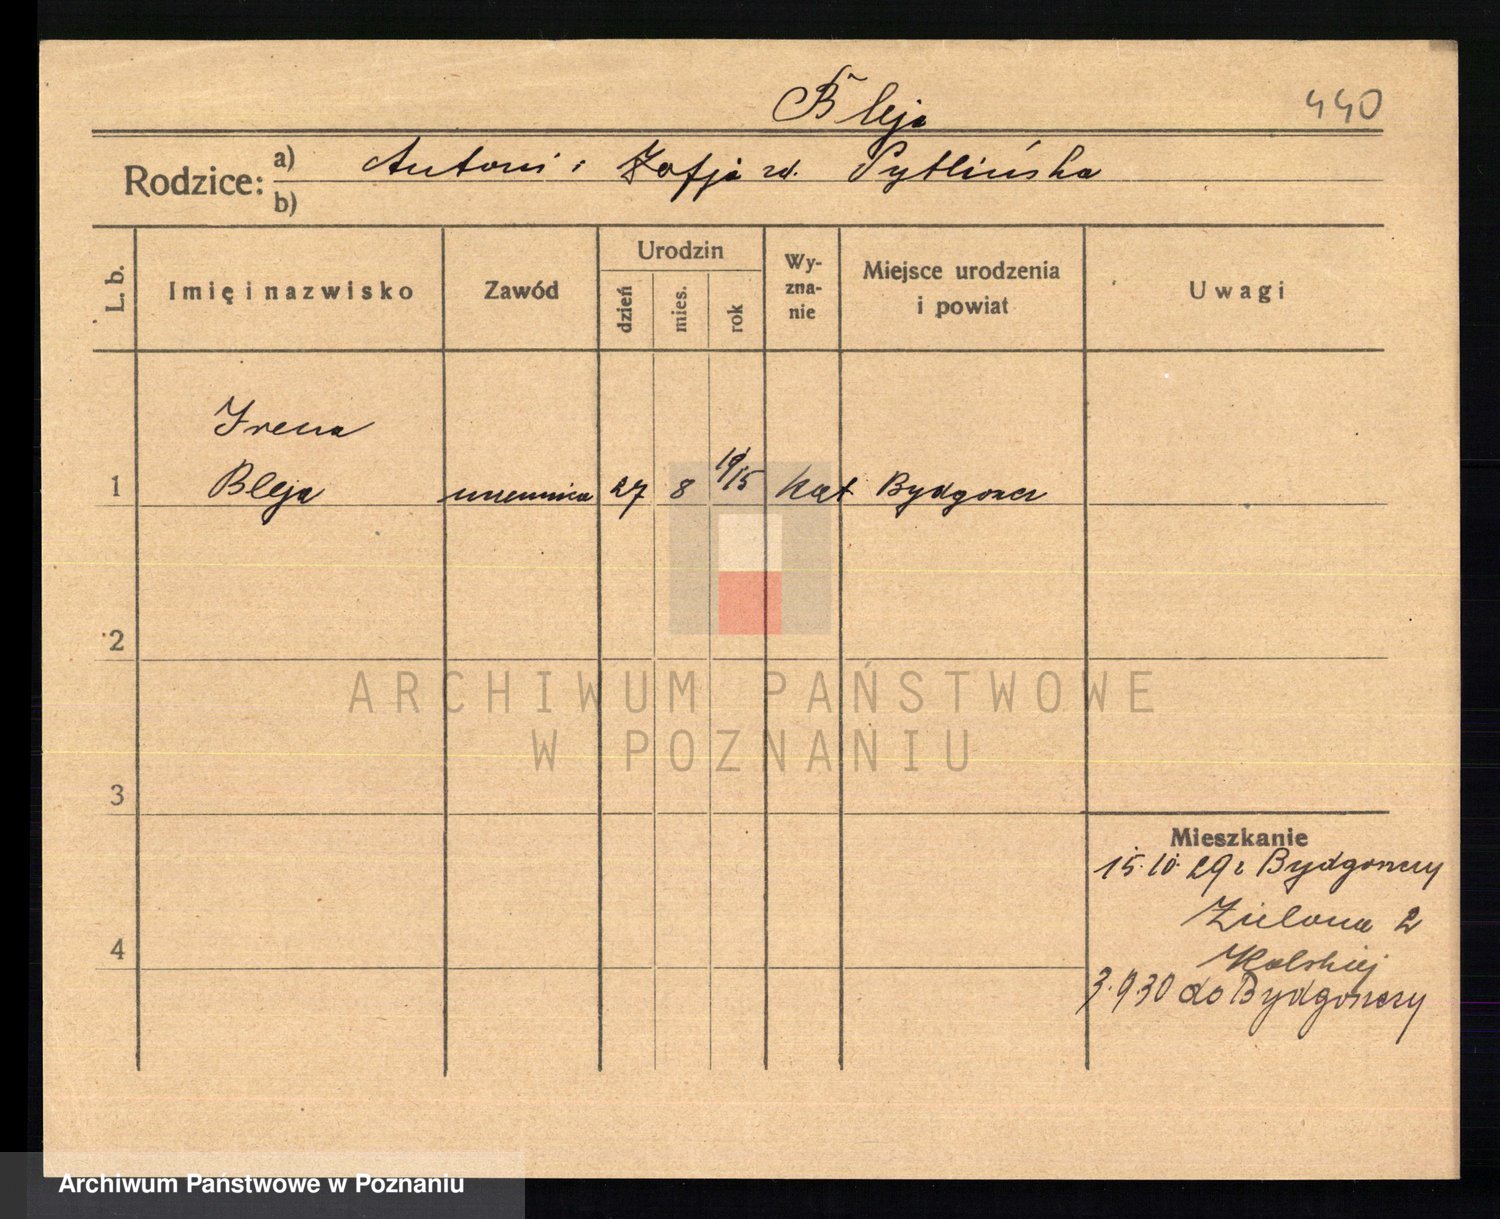 Bleja
440
Rodzice: a) Antoni i Zofja zd. Pytlińska
b)
L. b.
Imię i nazwisko
Zawód
Urodzin
dzień
mies.
rok
Wy-
zna-
nie
Miejsce urodzenia
i powiat
Uwagi
Irena
1 Bleja uczennica 27 8 1915 kat Bydgoszcz
2
3
4
Mieszkanie
15.10.29 z Bydgoszczy
Zielona 2
Kolskiej
3.9.30 do Bydgoszczy
ARCHIWUM PAŃSTWOWE
W POZNANIU
Archiwum Państwowe w Poznaniu